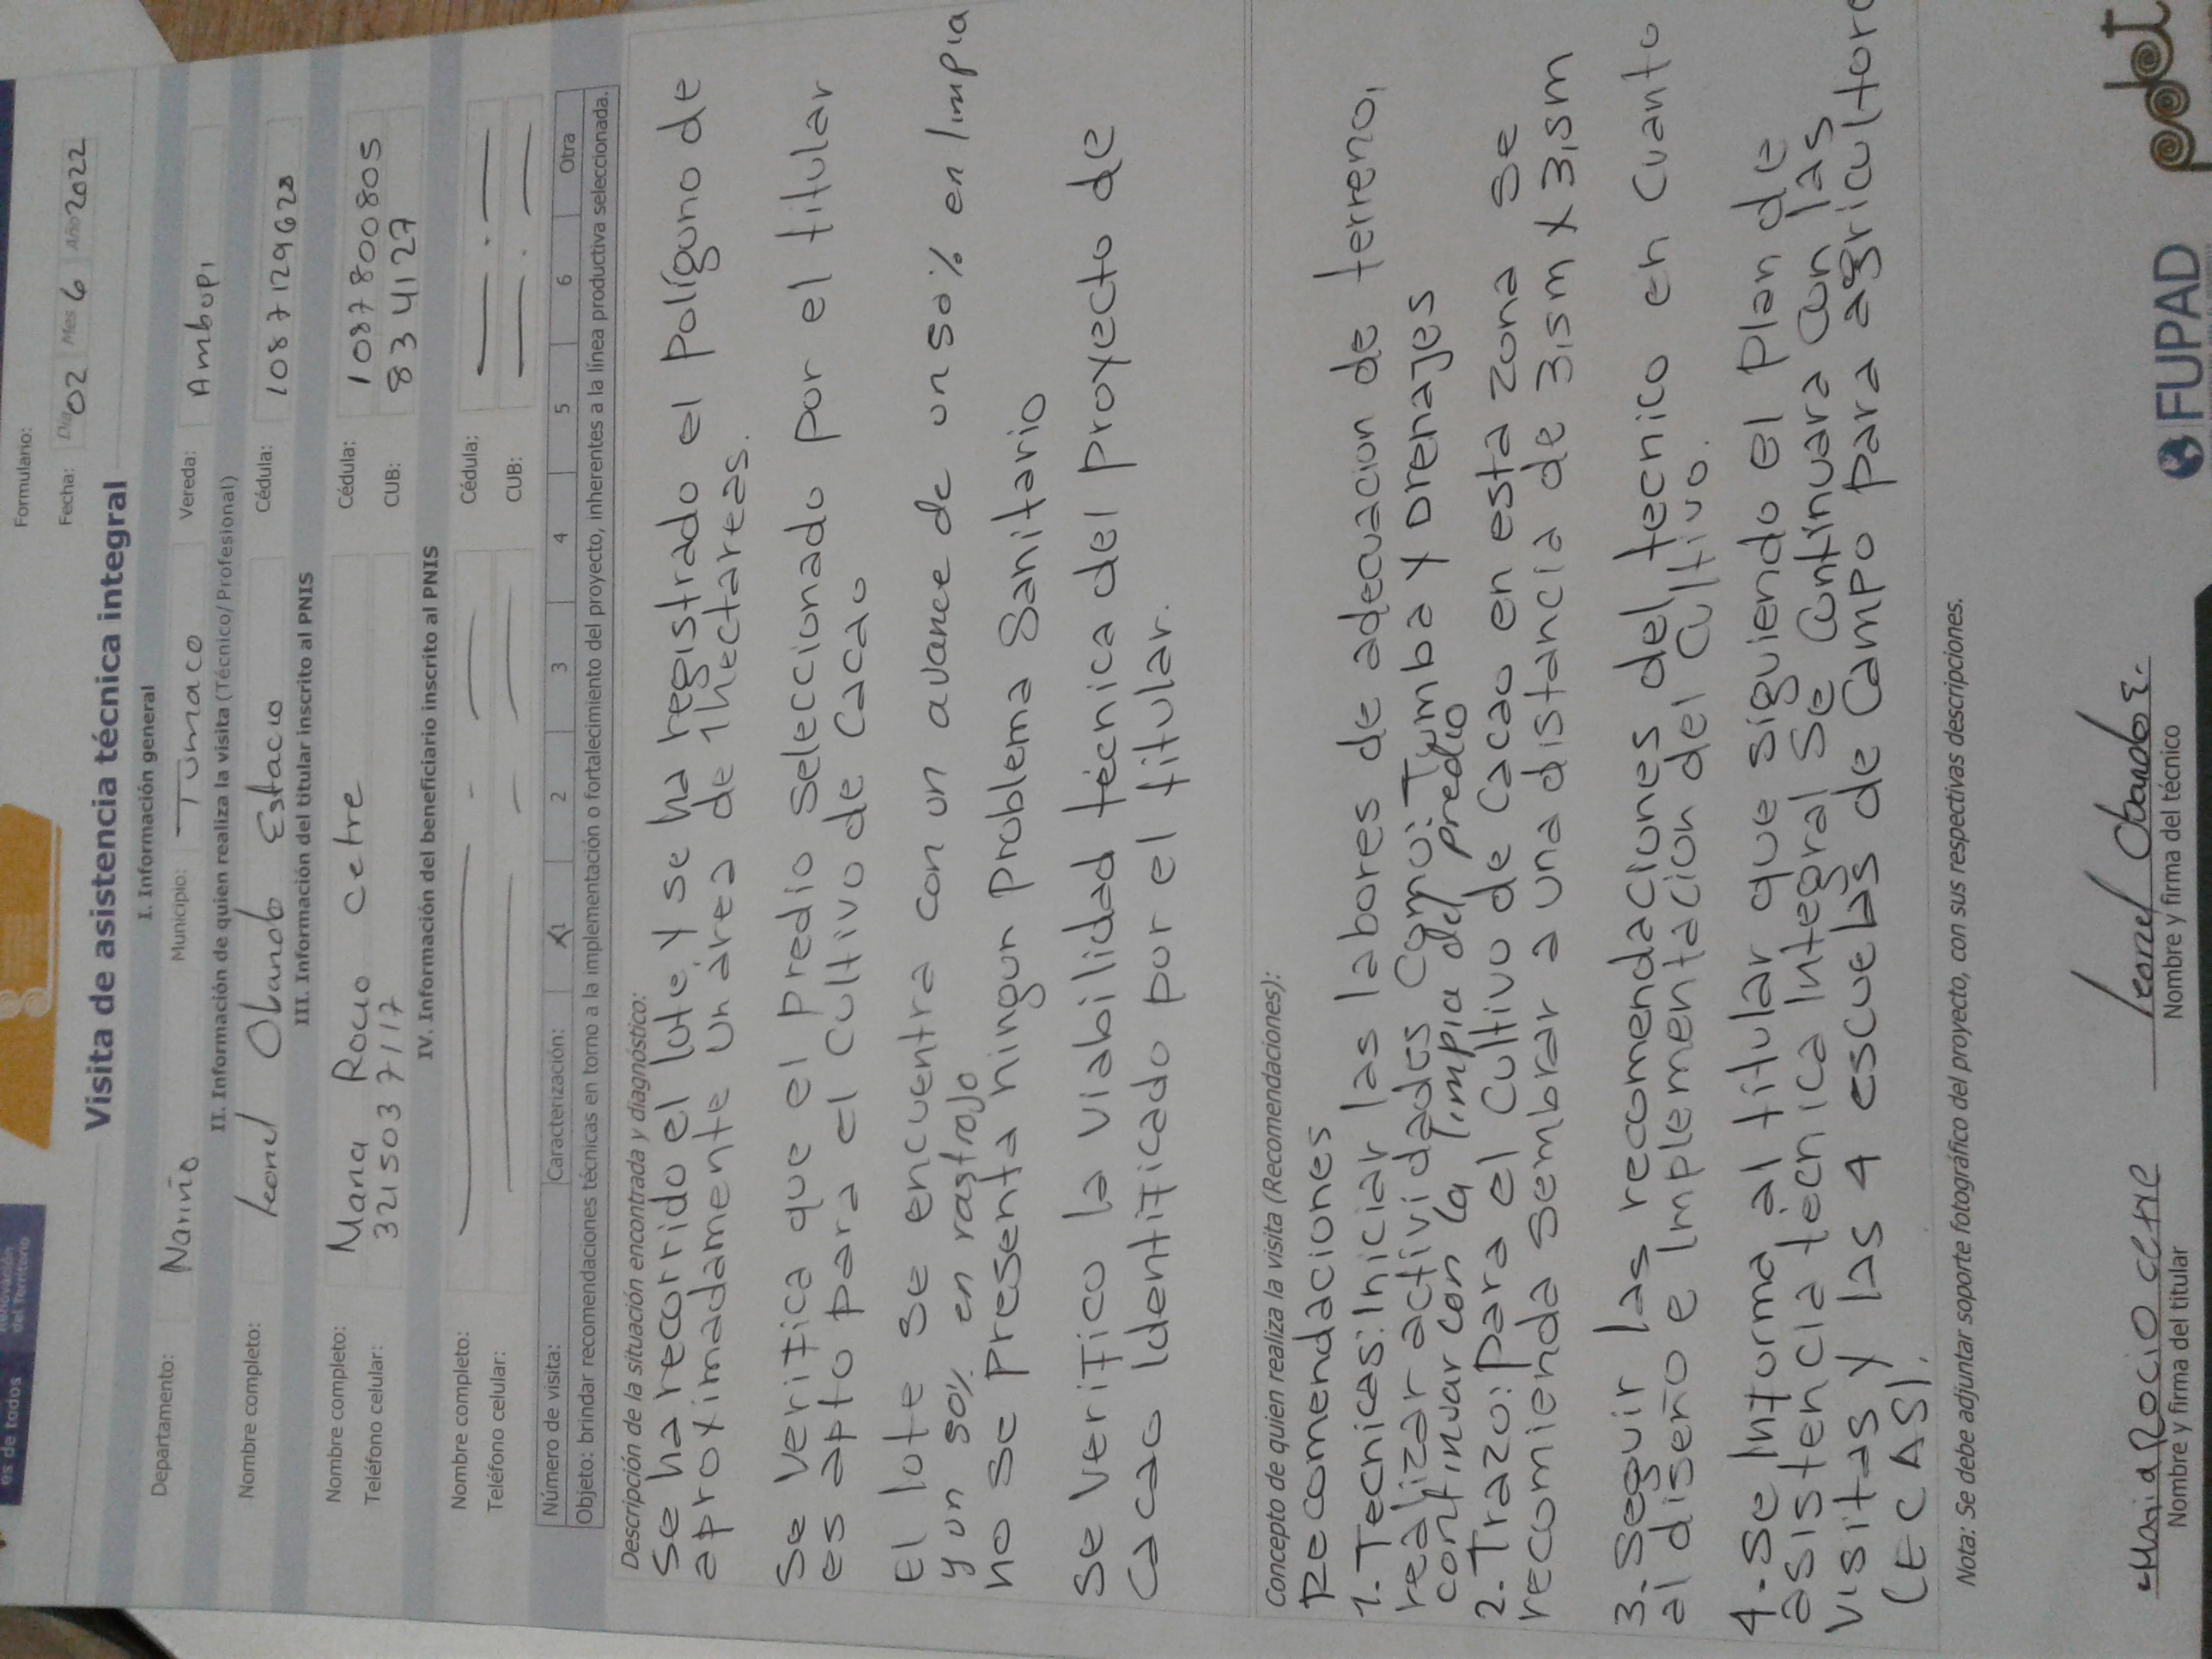 es de todos
Renovación
del Territorio
Formulario:
Fecha: Día 02 Mes 6 Año 2022
Visita de asistencia técnica integral
I. Información general
Departamento: Nariño Municipio: Tumaco Vereda: Ambupi
II. Información de quien realiza la visita (Técnico/Profesional)
Nombre completo: Leonel Obando Estacio Cédula: 1087129620
III. Información del titular inscrito al PNIS
Nombre completo: Maria Rocio cetre Cédula: 1087800805
Teléfono celular: 3215037117 CUB: 8341127
IV. Información del beneficiario inscrito al PNIS
Nombre completo: Cédula:
Teléfono celular: CUB:
Número de visita: Caracterización: X1 2 3 4 5 6 Otra
Objeto: brindar recomendaciones técnicas en torno a la implementación o fortalecimiento del proyecto, inherentes a la línea productiva seleccionada.
Descripción de la situación encontrada y diagnóstico:
Se ha recorrido el lote y se ha registrado el Polígono de
aproximadamente un área de 1hectareas.
Se verifica que el Predio seleccionado por el titular
es apto para el cultivo de Cacao
El lote se encuentra con un avance de un 50% en limpia
y un 50% en rastrojo
no se Presenta ningun Problema Sanitario
Se verifico la viabilidad técnica del Proyecto de
Cacao Identificado por el titular.
Concepto de quien realiza la visita (Recomendaciones):
Recomendaciones
1.-Tecnicas: Iniciar las labores de adecuacion de terreno,
realizar actividades Como: Tumba y Drenajes
continuar con la limpia del predio
2.-Trazo: Para el Cultivo de Cacao en esta zona se
recomienda sembrar a una distancia de 3,5m x 3,5m
3.-Seguir las recomendaciones del tecnico en Cuanto
al diseño e Implementacion del Cultivo.
4-Se Informa al titular que siguiendo el Plan de
asistencia técnica Integral Se Continuara Con las
visitas y las 4 escuelas de Campo Para agricultore
(ECAS).
Nota: Se debe adjuntar soporte fotográfico del proyecto, con sus respectivas descripciones.
Maria Rocio cetre Leonel Obando E.
Nombre y firma del titular Nombre y firma del técnico
FUPAD pdet